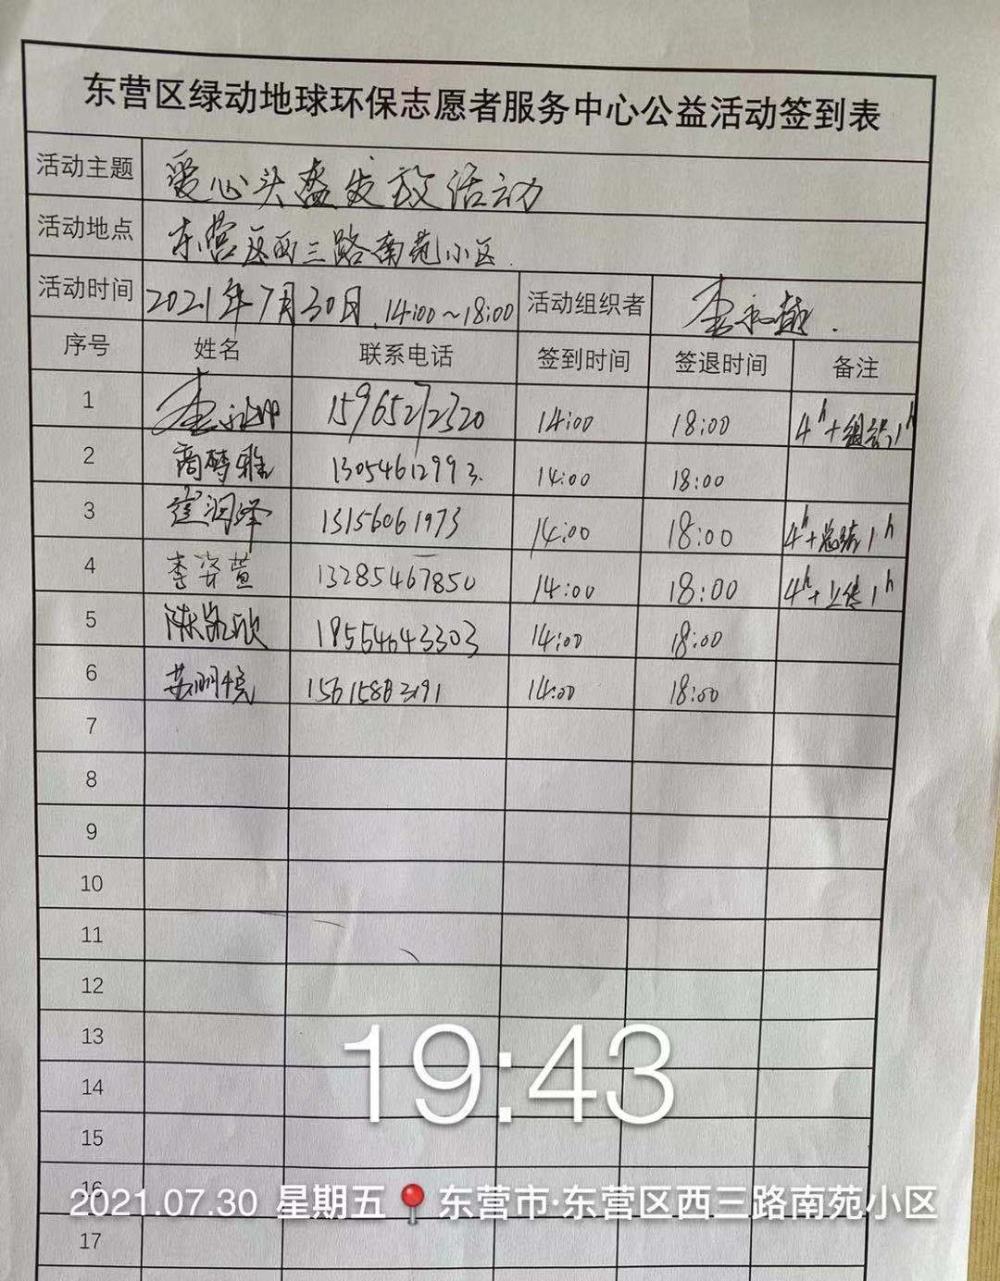 东营区绿动地球环保志愿者服务中心公益活动签到表
活动主题 爱心头盔发放活动
活动地点 东营区西三路南苑小区
活动时间 2021年7月30日.14:00~18:00 活动组织者 李
序号 姓名 联系电话 签到时间 签退时间 备注
1 李 15965272320 14:00 18:00 4h+组织1h
2 商梦雅 13054612993. 14:00 18:00
3 崔润泽 13156061973 14:00 18:00 4h+总结1h
4 李姿萱 13285467850 14:00 18:00 4h+上传1h
5 陈 18554643303 14:00 18:00
6 苏明悦 14:00 18:00
7
8
9
10
11
12
13
14
15
16
17
19:43
2021.07.30 星期五 东营市·东营区西三路南苑小区